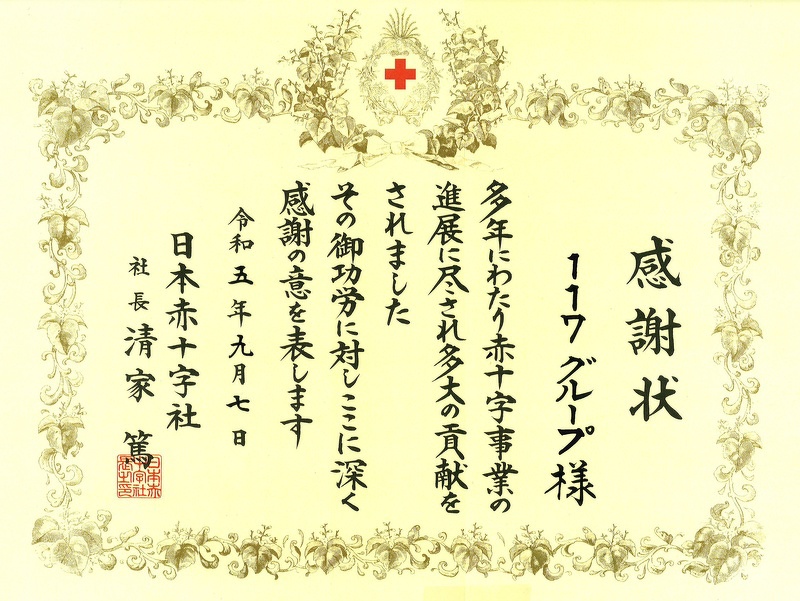 感謝状
117グループ様
多年にわたり赤十字事業の
進展に尽され多大の貢献を
されました
その御功労に対しここに深く
感謝の意を表します
令和五年九月七日
日本赤十字社
社長 清家篤
日本赤
十字社
長之印